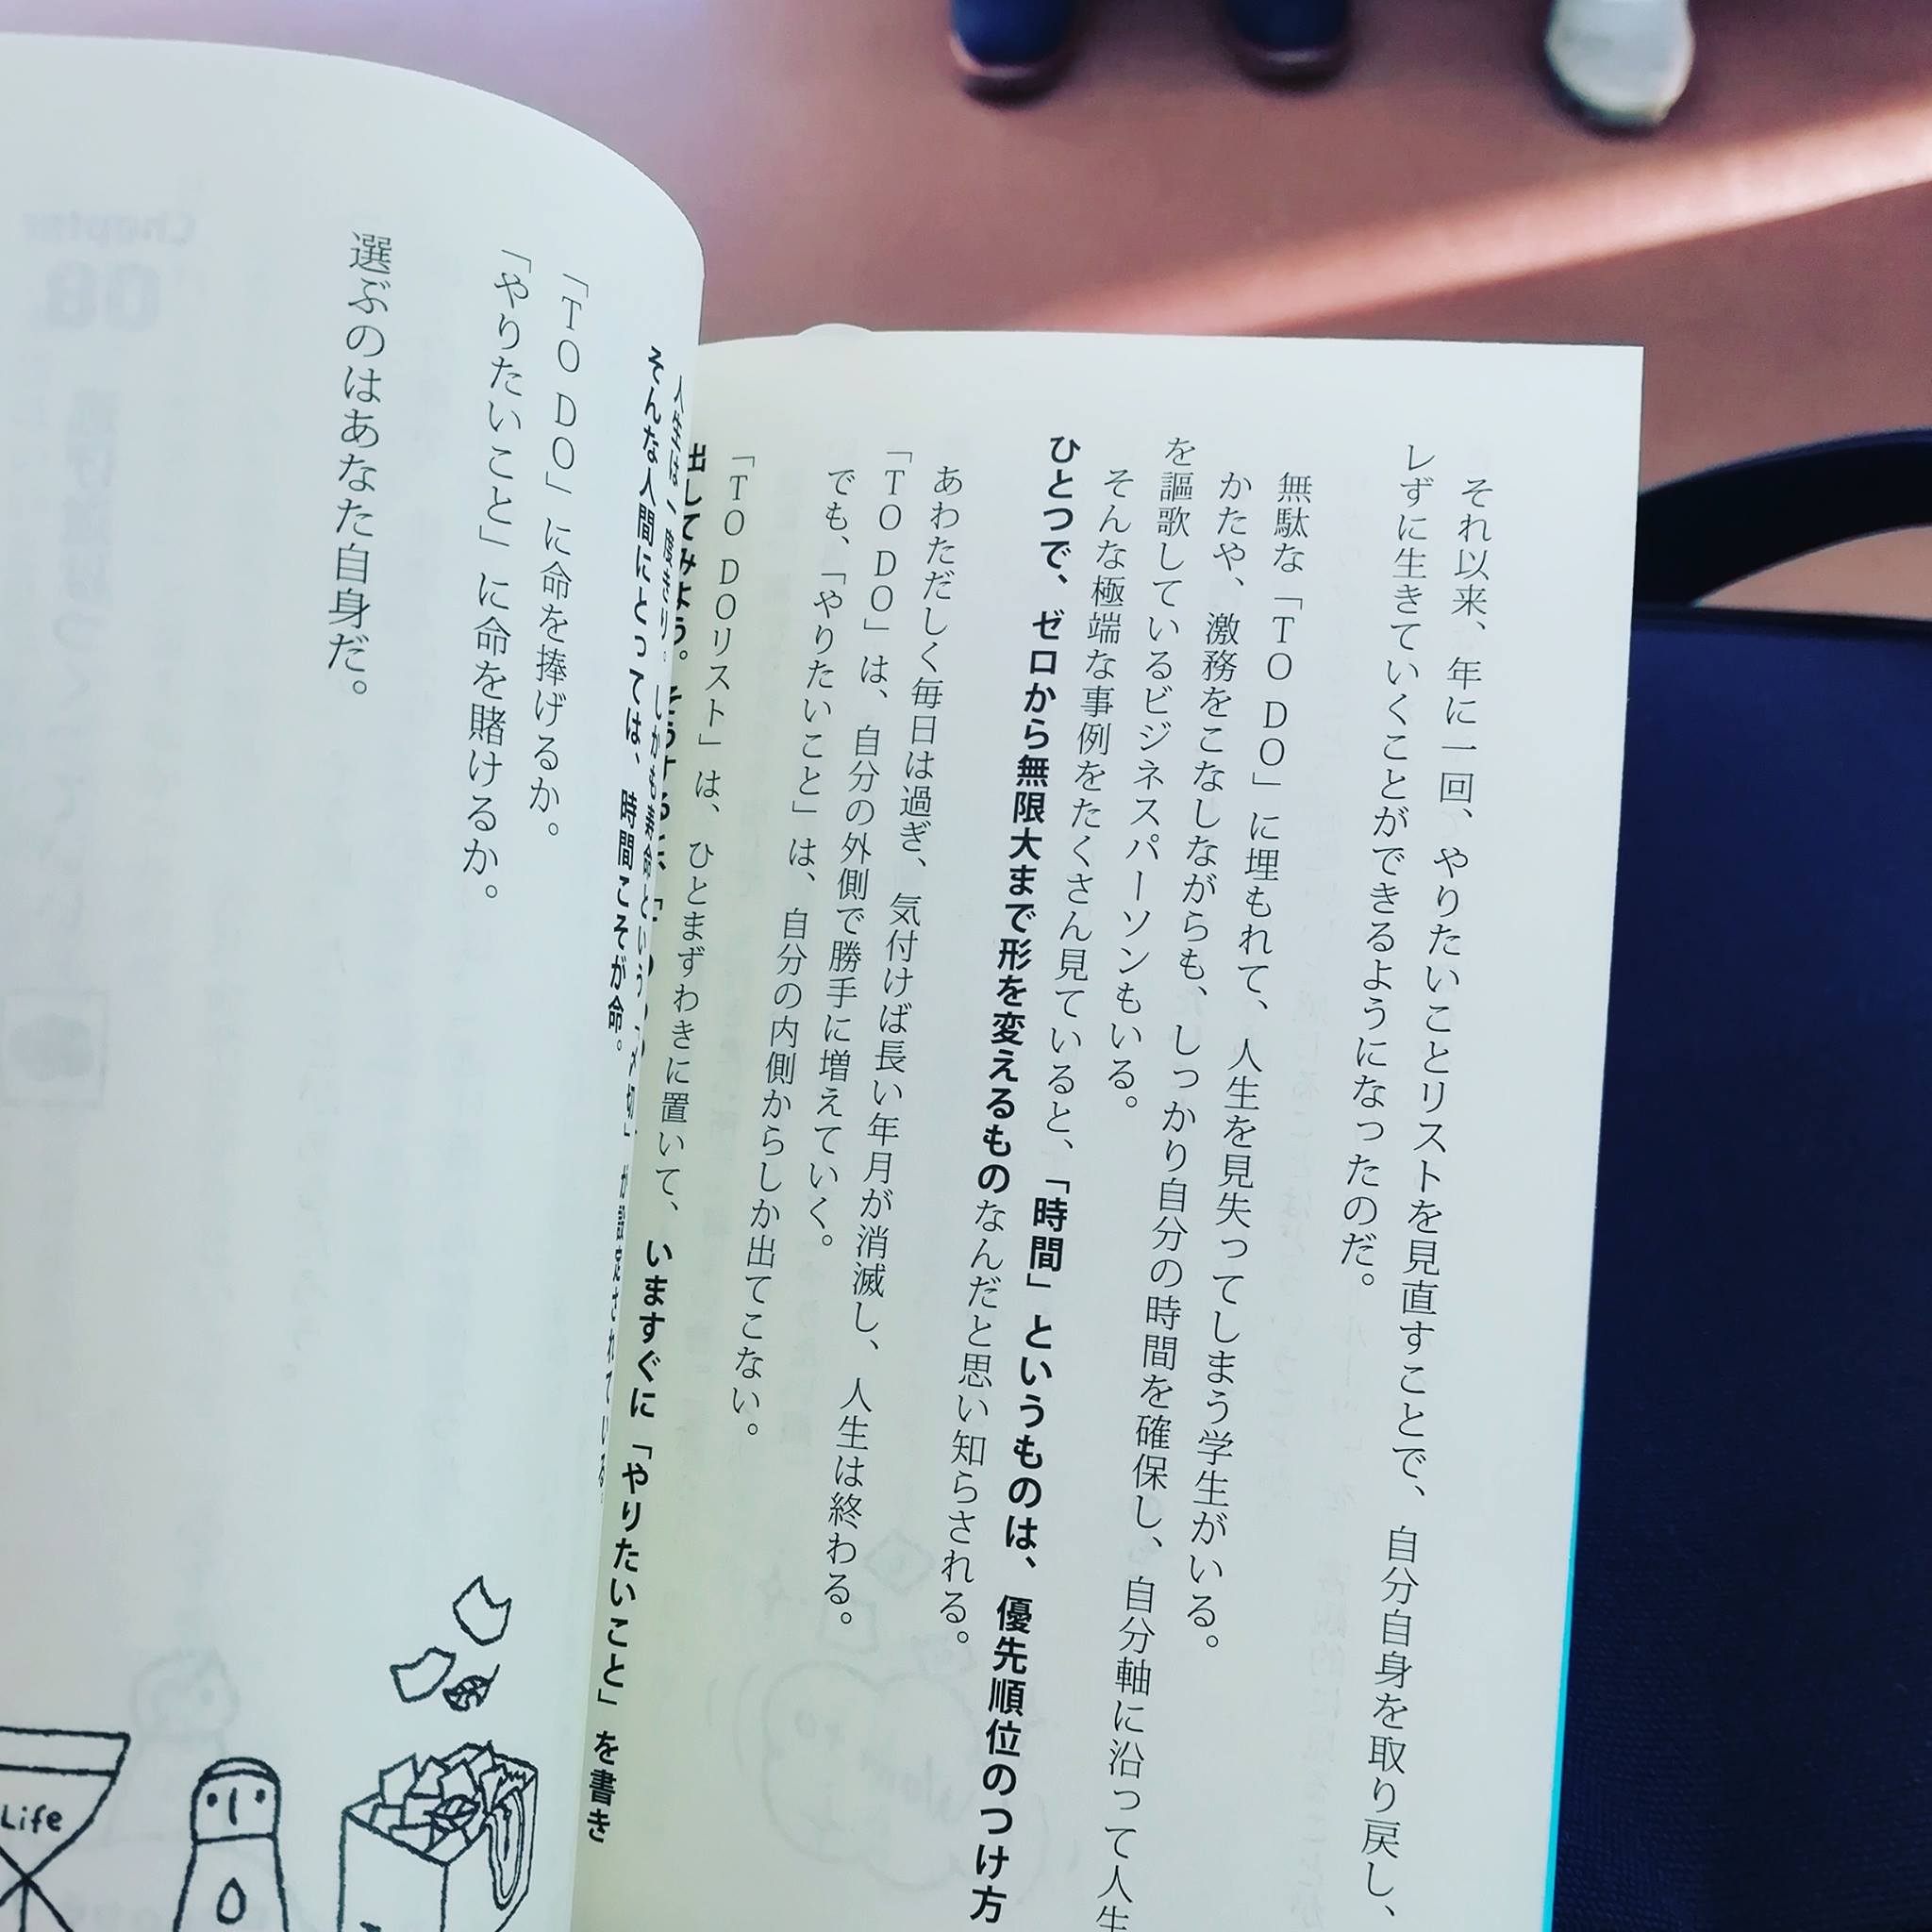 それ以来、年に一回、やりたいことリストを見直すことで、自分自身を取り戻し、
レずに生きていくことができるようになったのだ。
無駄な「TO DO」に埋もれて、人生を見失ってしまう学生がいる。
かたや、激務をこなしながらも、しっかり自分の時間を確保し、自分軸に沿って人生
を謳歌しているビジネスパーソンもいる。
そんな極端な事例をたくさん見ていると、「時間」というものは、優先順位のつけ方
ひとつで、ゼロから無限大まで形を変えるものなんだと思い知らされる。
あわただしく毎日は過ぎ、気付けば長い年月が消滅し、人生は終わる。
「TO DO」は、自分の外側で勝手に増えていく。
でも、「やりたいこと」は、自分の内側からしか出てこない。
「TO DOリスト」は、ひとまずわきに置いて、いますぐに「やりたいこと」を書き
出してみよう。そうすると、
人生は一度きり。しかも寿命という「〆切」が設定されている。
そんな人間にとっては、時間こそが命。
「TO DO」に命を捧げるか。
「やりたいこと」に命を賭けるか。
選ぶのはあなた自身だ。
Life